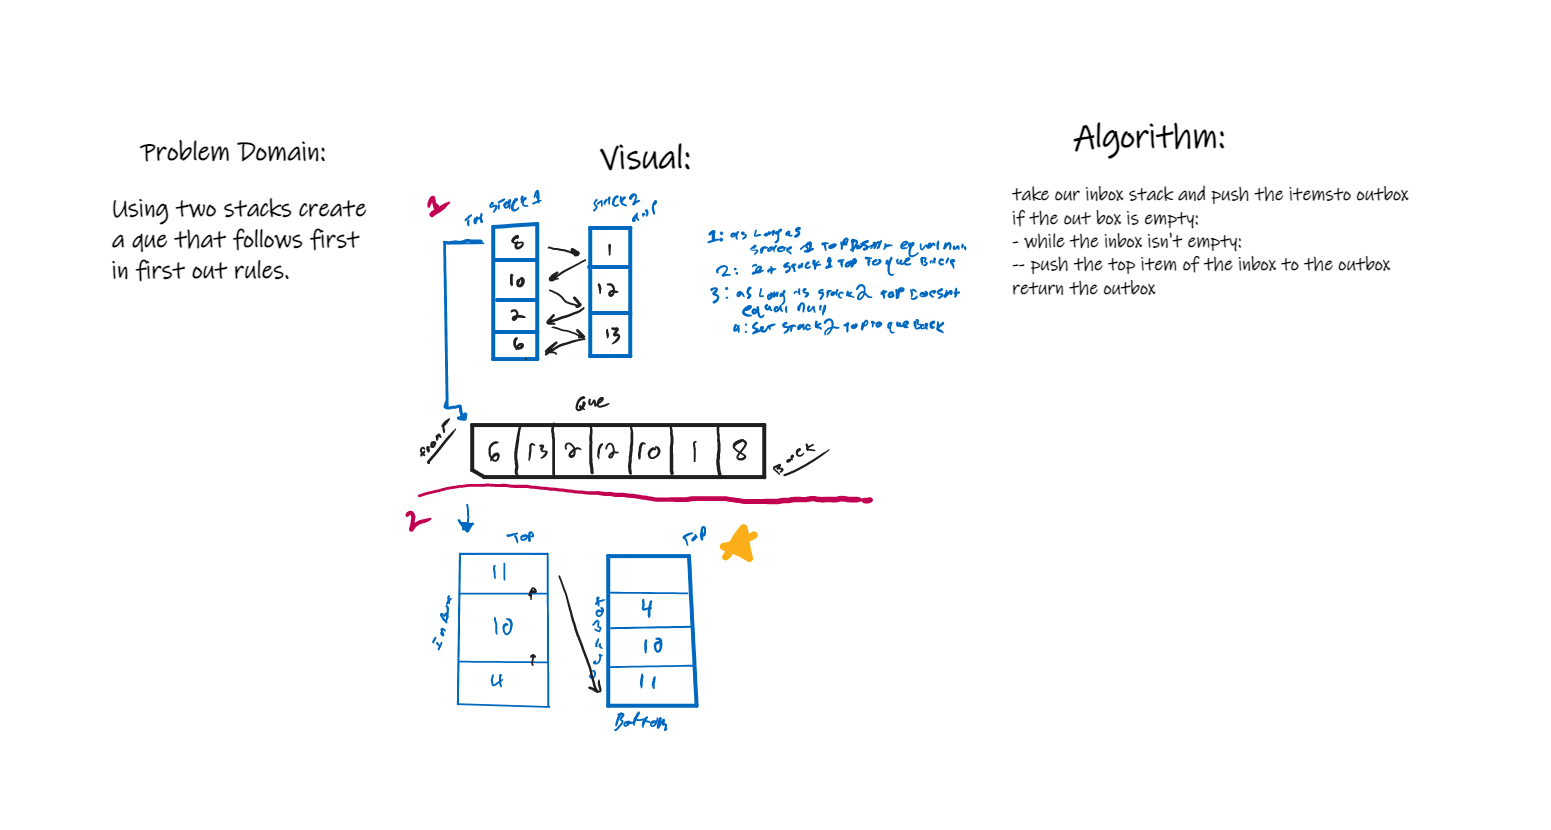 Problem Domain:
Using two stacks create
a que that follows first
in first out rules.
Visual:
1
Top stack 1
stack 2
top
8
10
2
6
1
12
13
1: as long as
stack 1 top doesn't equal null
2: set stack 1 top to que back
3: as long as stack 2 top doesnt
equal null
4: set stack 2 top to que back
Que
front
6 13 2 12 10 1 8
Back
2
Top
11
10
4
In Box
Top
4
10
11
Bottom
Algorithm:
take our inbox stack and push the itemsto outbox
if the out box is empty:
- while the inbox isn't empty:
-- push the top item of the inbox to the outbox
return the outbox